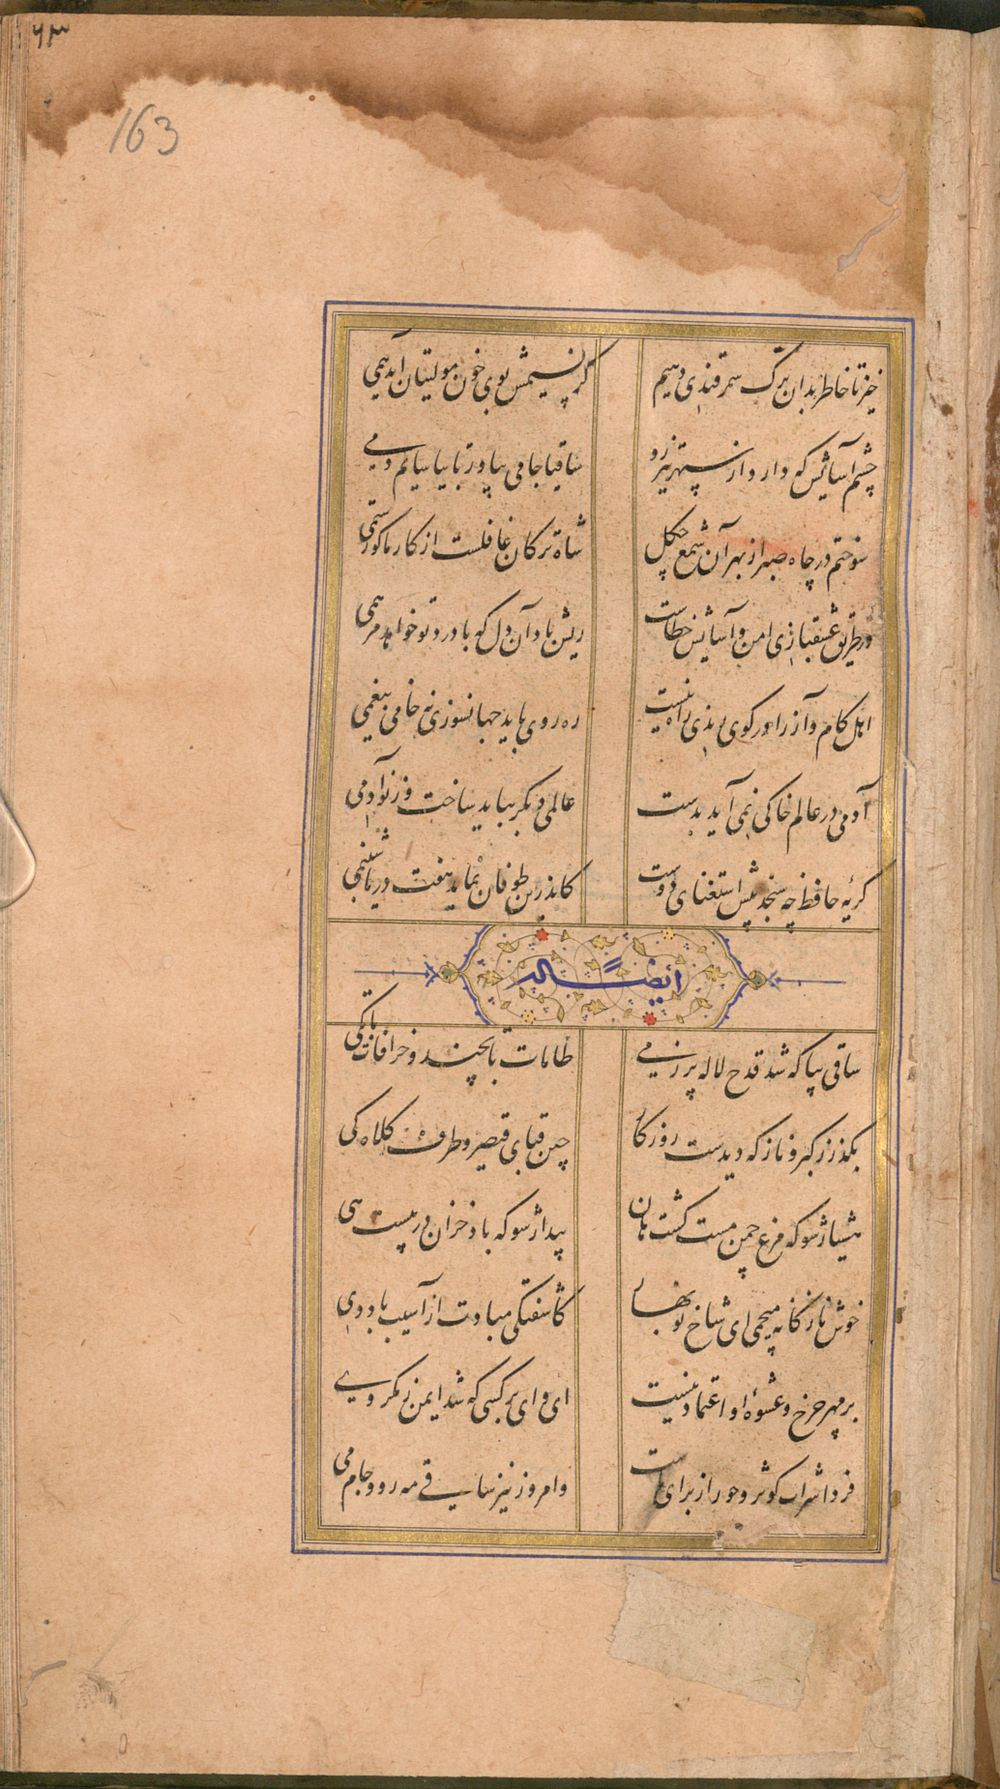 ۶۳
163
خیز تا خاطر بدان ترک سمرقندی دهیم
کز نسیمش بوی خون مولیان آید همی
چشم آسایش که دارد از سپهر تیز رو
ساقیا جامی بیاور تا بیاسایم دمی
سوختم در چاه صبر از بهر آن شمع چکل
شاه ترکان غافلست از کار ما کو رستمی
در طریق عشقبازی امن و آسایش خطاست
ریش باد آن دل که با درد تو خواهد مرهمی
اهل کام و آز را در کوی رندی راه نیست
ره روی باید جهانسوزی نه خامی بیغمی
آدمی در عالم خاکی نمی آید بدست
عالمی دیگر بباید ساخت وز نو آدمی
گریه حافظ چه سنجد پیش استغنای دوست
کاندرین طوفان نماید هفت دریا شبنمی
ایضاً له
ساقی بیا که شد قدح لاله پر ز می
طامات تا بچند و خرافات تا بکی
بگذر ز کبر و ناز که دیدست روزگار
چین قبای قیصر و طرف کلاه کی
هشیار شو که مرغ چمن مست گشت هان
بیدار شو که باد خزان در پیست هی
خوش نازکانه میچمی ای شاخ نوبهار
کاشفتگی مبادت از آسیب باد دی
بر مهر چرخ و عشوه او اعتماد نیست
ای وای بر کسی که شد ایمن ز مکر وی
فردا شراب کوثر و حور از برای ماست
وامروز نیز ساقی مه رو و جام می